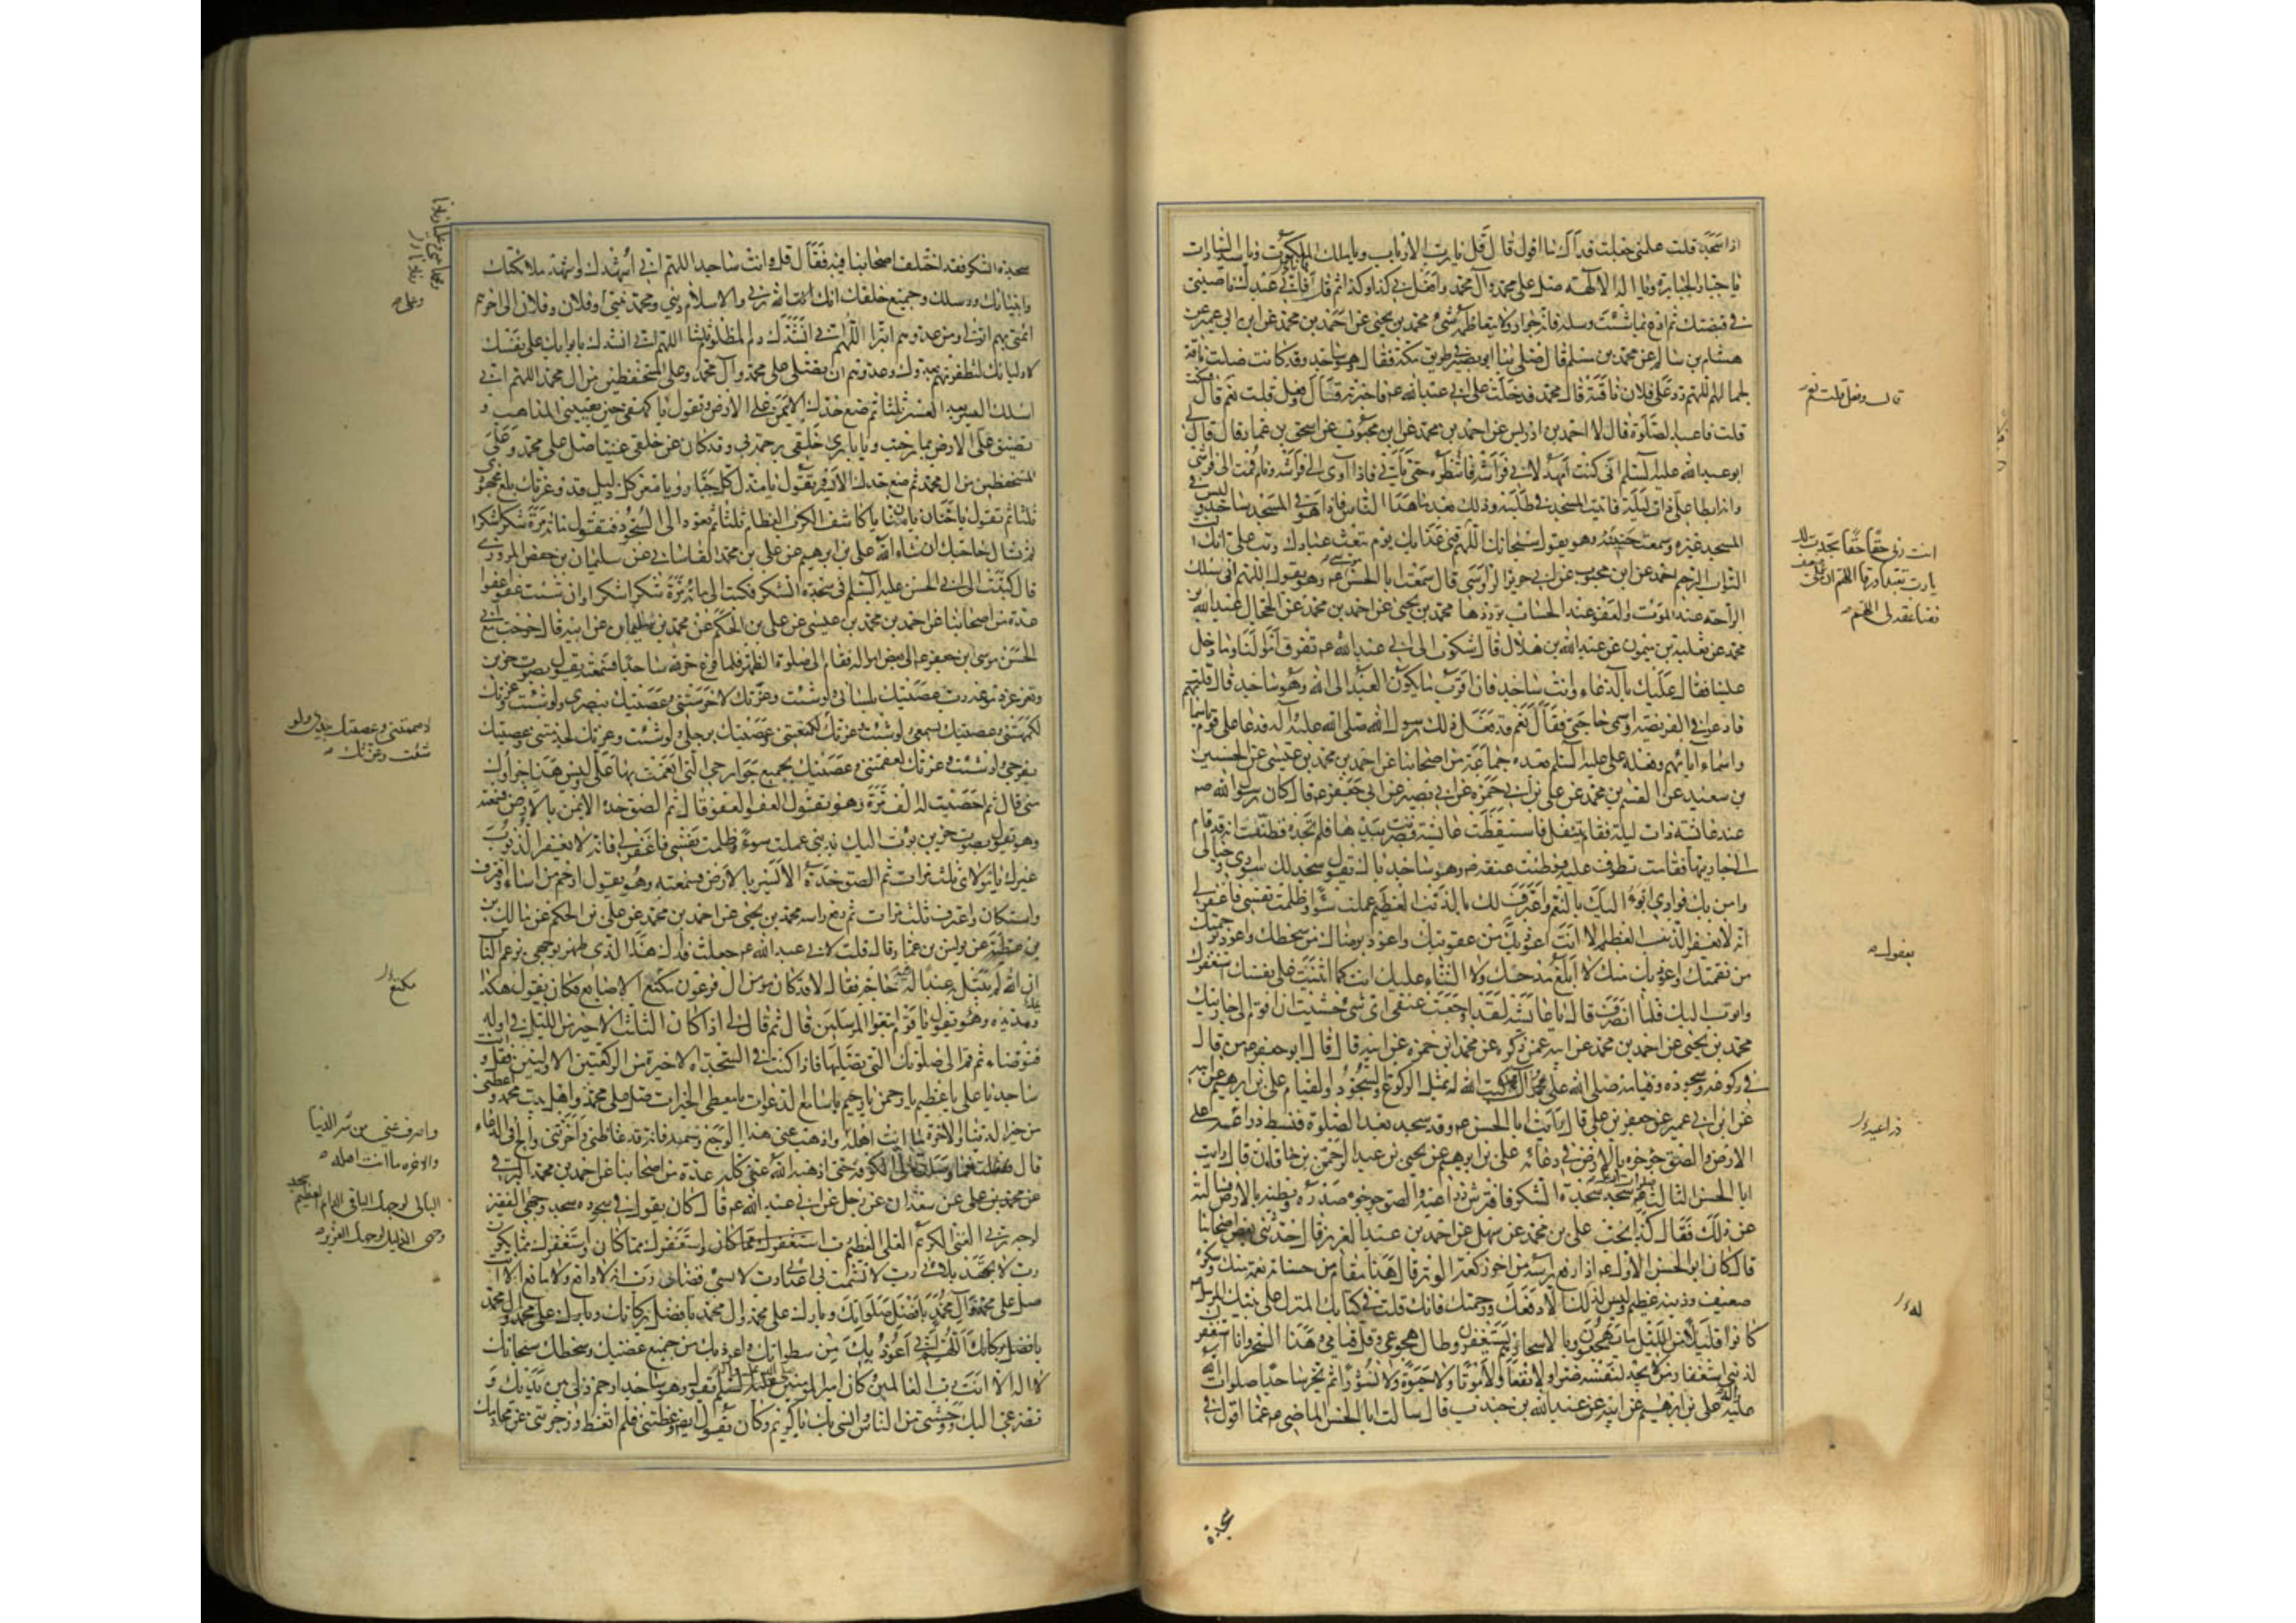 اذا سجدت قلت علمني جعلت فداك ما اقول قال قل يا رب الارباب ويا ملك الملوك ويا سيد السادات
يا جبار الجبابرة ويا اله الالهة صل على محمد وآل محمد وافعل بي كذا وكذا ثم قل فاني عبدك ناصيتي
في قبضتك ثم ادع بما شئت وسله فانه جواد ولا يتعاظمه شيء محمد بن يحيى عن احمد بن محمد عن ابن ابي عمير عن
هشام بن سالم عن محمد بن مسلم قال صلى بنا ابو بصير في طريق مكة فقال وهو ساجد وقد كانت ضلت ناقة
لجمالهم اللهم رد على فلان ناقته قال محمد فدخلت على ابي عبد الله ع فاخبرته فقال وفعل قلت نعم قال فسكت
قلت فاعيد الصلوة قال لا احمد بن ادريس عن احمد بن محمد عن ابن محبوب عن اسحق بن عمار قال قال لي
ابو عبد الله عليه السلم اني كنت امهد لابي فراشه فانتظره حتى يأتي فاذا اوى الى فراشه ونام قمت الى فراشي
وانه ابطا علي ذات ليلة فاتيت المسجد في طلبه وذلك بعد ما هدا الناس فاذا هو في المسجد ساجد وليس في
المسجد غيره وسمعت حنينه وهو يقول سبحانك اللهم قني عذابك يوم تبعث عبادك وتب علي انك انت
التواب الرحيم احمد عن ابن محبوب عن ابي جرير الرواسي قال سمعت ابا الحسن موسى ع وهو يقول اللهم اني اسلك
الراحة عند الموت والعفو عند الحساب يرددها محمد بن يحيى عن احمد بن محمد عن الحجال عن عبد الله بن
محمد عن ثعلبة بن ميمون عن عبد الله بن هلال قال شكوت الى ابي عبد الله ع تفرق اموالنا وما دخل
علينا فقال عليك بالدعاء وانت ساجد فان اقرب ما يكون العبد الى الله وهو ساجد قال قلت
فادعو في الفريضة واسمي حاجتي فقال نعم قد فعل ذلك رسول الله صلى الله عليه وآله فدعا على قوم باسمائهم
واسماء ابائهم وفعله علي عليه السلم بعده جماعة من اصحابنا عن احمد بن محمد بن عيسى عن الحسين
بن سعيد عن القسم بن محمد عن علي بن ابي حمزة عن ابي بصير عن ابي جعفر ع قال كان رسول الله ص
عند عائشة ذات ليلة فقام يتنفل فاستيقظت عائشة فضربت بيدها فلم تجده فظنت انه قد قام
الى جاريتها فقامت تطوف عليه فوطئت عنقه ص وهو ساجد باك يقول سجد لك سوادي وخيالي
وامن بك فوادي ابوء اليك بالنعم واعترف لك بالذنب العظيم عملت سوءا وظلمت نفسي فاغفر لي
انه لا يغفر الذنب العظيم الا انت اعوذ بعفوك من عقوبتك واعوذ برضاك من سخطك واعوذ برحمتك
من نقمتك واعوذ بك منك لا ابلغ مدحك ولا الثناء عليك انت كما اثنيت على نفسك استغفرك
واتوب اليك فلما انصرف قال يا عائشة لقد اوجعت عنقي اي شيء خشيت ان اقوم الى جاريتك
محمد بن يحيى عن احمد بن محمد عن ابيه عمن ذكره عن محمد بن ابي حمزة عن ابيه قال قال ابو جعفر ع من قال
في ركوعه وسجوده وقيامه صلى الله على محمد وآل محمد كتب الله له بمثل الركوع والسجود والقيام علي بن ابرهيم عن ابيه
عن ابن ابي عمير عن جعفر بن علي قال رأيت ابا الحسن ع وقد سجد بعد الصلوة فبسط ذراعيه على
الارض والصق جؤجؤه بالارض في دعائه علي بن ابرهيم عن يحيى بن عبد الرحمن بن خاقان قال رايت
ابا الحسن الثالث ع سجد سجدة الشكر فافترش ذراعيه والصق جؤجؤه وصدره وبطنه بالارض فسالته
عن ذلك فقال كذا يحب علي بن محمد عن سهل عن احمد بن عبد العزيز قال حدثني بعض اصحابنا
قال كان ابو الحسن الاول ع اذا رفع رأسه من اخر ركعة الوتر قال هذا مقام من حسناته نعمة منك وشكره
ضعيف وذنبه عظيم وليس لذلك الا دفعك ورحمتك فانك قلت في كتابك المنزل على نبيك المرسل ص
كانوا قليلا من الليل ما يهجعون وبالاسحار هم يستغفرون طال هجوعي وقل قيامي وهذا السحر وانا استغفرك
لذنبي استغفار من لا يجد لنفسه ضرا ولا نفعا ولا موتا ولا حيوة ولا نشورا ثم يخر ساجدا صلوات الله
عليه علي بن ابرهيم عن ابيه عن عبد الله بن جندب قال سالت ابا الحسن الماضي ع عما اقول في
سجدة
قال وفعل قلت نعم
انت ربي حقا حقا سجدت لك
يا رب تعبدا ورقا اللهم ان عملي ضعيف
فضاعفه لي اللهم
بعفوك
ذراعيه
له
سجدة الشكر فقد اختلف اصحابنا فيه فقال قل وانت ساجد اللهم اني اشهدك واشهد ملائكتك
وانبياءك ورسلك وجميع خلقك انك انت الله ربي والاسلام ديني ومحمد نبيي وفلان وفلان الى اخرهم
ائمتي بهم اتولى ومن عدوهم اتبرا اللهم اني انشدك دم المظلوم ثلثا اللهم اني انشدك بايوائك على نفسك
لاوليائك لتظفرنهم بعدوك وعدوهم ان تصلي على محمد وآل محمد وعلى المستحفظين من ال محمد اللهم اني
اسلك اليسر بعد العسر ثلثا ثم ضع خدك الايمن على الارض وتقول يا كهفي حين تعييني المذاهب و
تضيق علي الارض بما رحبت ويا بارئ خلقي رحمة بي وقد كان عن خلقي غنيا صل على محمد وعلى
المستحفظين من ال محمد ثم ضع خدك الايسر وتقول يا مذل كل جبار ويا معز كل ذليل قد وعزتك بلغ مجهودي
ثلثا ثم تقول يا حنان يا منان يا كاشف الكرب العظام ثلثا ثم تعود الى السجود فتقول مائة مرة شكرا شكرا
ثم تسال حاجتك ان شاء الله علي بن ابرهيم عن علي بن محمد القاساني عن سليمان بن حفص المروزي
قال كتبت الى ابي الحسن عليه السلم في سجدة الشكر فكتب الي مائة مرة شكرا شكرا وان شئت عفوا عفوا
عدة من اصحابنا عن احمد بن محمد بن عيسى عن علي بن الحكم عن محمد بن سليمان عن ابيه قال خرجت مع ابي
الحسن موسى بن جعفر ع الى بعض امواله فقام الى صلوة الظهر فلما فرغ خر لله ساجدا فسمعته يقول بصوت حزين
وتغرغر دموعه رب عصيتك بلساني ولو شئت وعزتك لاخرستني وعصيتك ببصري ولو شئت وعزتك
لكمهتني وعصيتك بسمعي ولو شئت وعزتك لكنعتني وعصيتك برجلي ولو شئت وعزتك لجذمتني وعصيتك
بفرجي ولو شئت وعزتك لعقمتني وعصيتك بجميع جوارحي التي انعمت بها علي وليس هذا جزاؤك
مني قال ثم احصيت له الف مرة وهو يقول العفو العفو قال ثم الصق خده الايمن بالارض فسمعته
وهو يقول بصوت حزين بؤت اليك بذنبي عملت سوءا وظلمت نفسي فاغفر لي فانه لا يغفر الذنوب
غيرك يا مولاي ثلث مرات ثم الصق خده الايسر بالارض فسمعته وهو يقول ارحم من اساء واقترف
واستكان واعترف ثلث مرات ثم رفع راسه محمد بن يحيى عن احمد بن محمد عن علي بن الحكم عن مالك بن
عطية عن يونس بن عمار قال قلت لابي عبد الله ع جعلت فداك هذا الذي ظهر بوجهي يزعم الناس
ان الله لم يبتل به عبدا له فيه حاجة فقال لا قد كان مؤمن ال فرعون مكنع الاصابع فكان يقول هكذا
ويمد يده وهو يقول يا قوم اتبعوا المرسلين قال ثم قال لي اذا كان الثلث الاخير من الليل في اوله
فتوضاء ثم قم الى صلوتك التي تصليها فاذا كنت في السجدة الاخيرة من الركعتين الاوليين فقل وانت
ساجد يا علي يا عظيم يا رحمن يا رحيم يا سامع الدعوات يا معطي الخيرات صل على محمد واهل بيت محمد واعطني
من خير الدنيا والاخرة ما انت اهله واذهب عني هذا الوجع وتسميه فانه قد غاظني واحزنني والح في الدعاء
قال فما وصلت الى الكوفة حتى اذهب الله عني كله عدة من اصحابنا عن احمد بن محمد البرقي
عن محمد بن علي عن سعدان عن رجل عن ابي عبد الله ع قال كان يقول في سجوده سجد وجهي الفقير
لوجه ربي الغني الكريم العلي العظيم رب استغفرك مما كان واستغفرك مما يكون
رب لا تجهد بلائي رب لا تشمت بي اعدائي رب لا تسئ قضائي رب انه لا دافع ولا مانع الا انت
صل على محمد وآل محمد بافضل صلواتك وبارك على محمد وال محمد بافضل بركاتك
بافضل بركاتك اللهم اني اعوذ بك من سطواتك واعوذ بك من جميع غضبك وسخطك سبحانك
لا اله الا انت رب العالمين كان امير المؤمنين عليه السلم يقول وهو ساجد ارحم ذلي بين يديك و
تضرعي اليك ووحشتي من الناس وانسي بك يا كريم وكان يقول ايضا وعظتني فلم اتعظ وزجرتني عن محارمك
وعلي
لاصممتني وعصيتك بيدي ولو
شئت وعزتك
مكنع
واصرف عني من شر الدنيا
والاخرة ما انت اهله
البالي لوجهك الباقي الدائم العظيم سجد
وجهي الذليل لوجهك العزيز